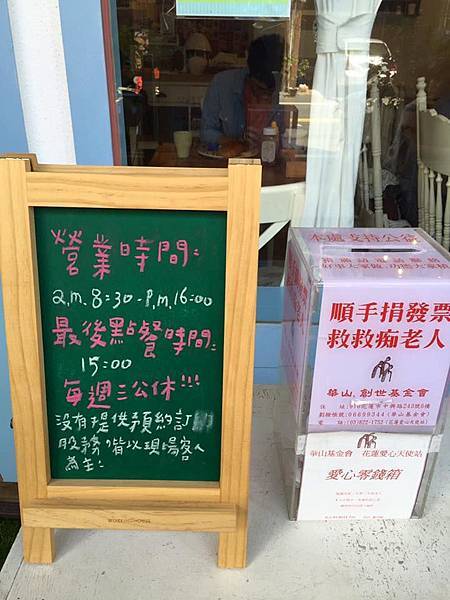 營業時間:
a.m.8:30-P.m.16:00
最後點餐時間:
15:00
每週三公休!!!
沒有提供預約訂
服務,皆以現場客人
為主:
本處支持公益
順手捐發票
救救痴老人
華山.創世基金會
華山基金會 花蓮愛心天使站
愛心零錢箱